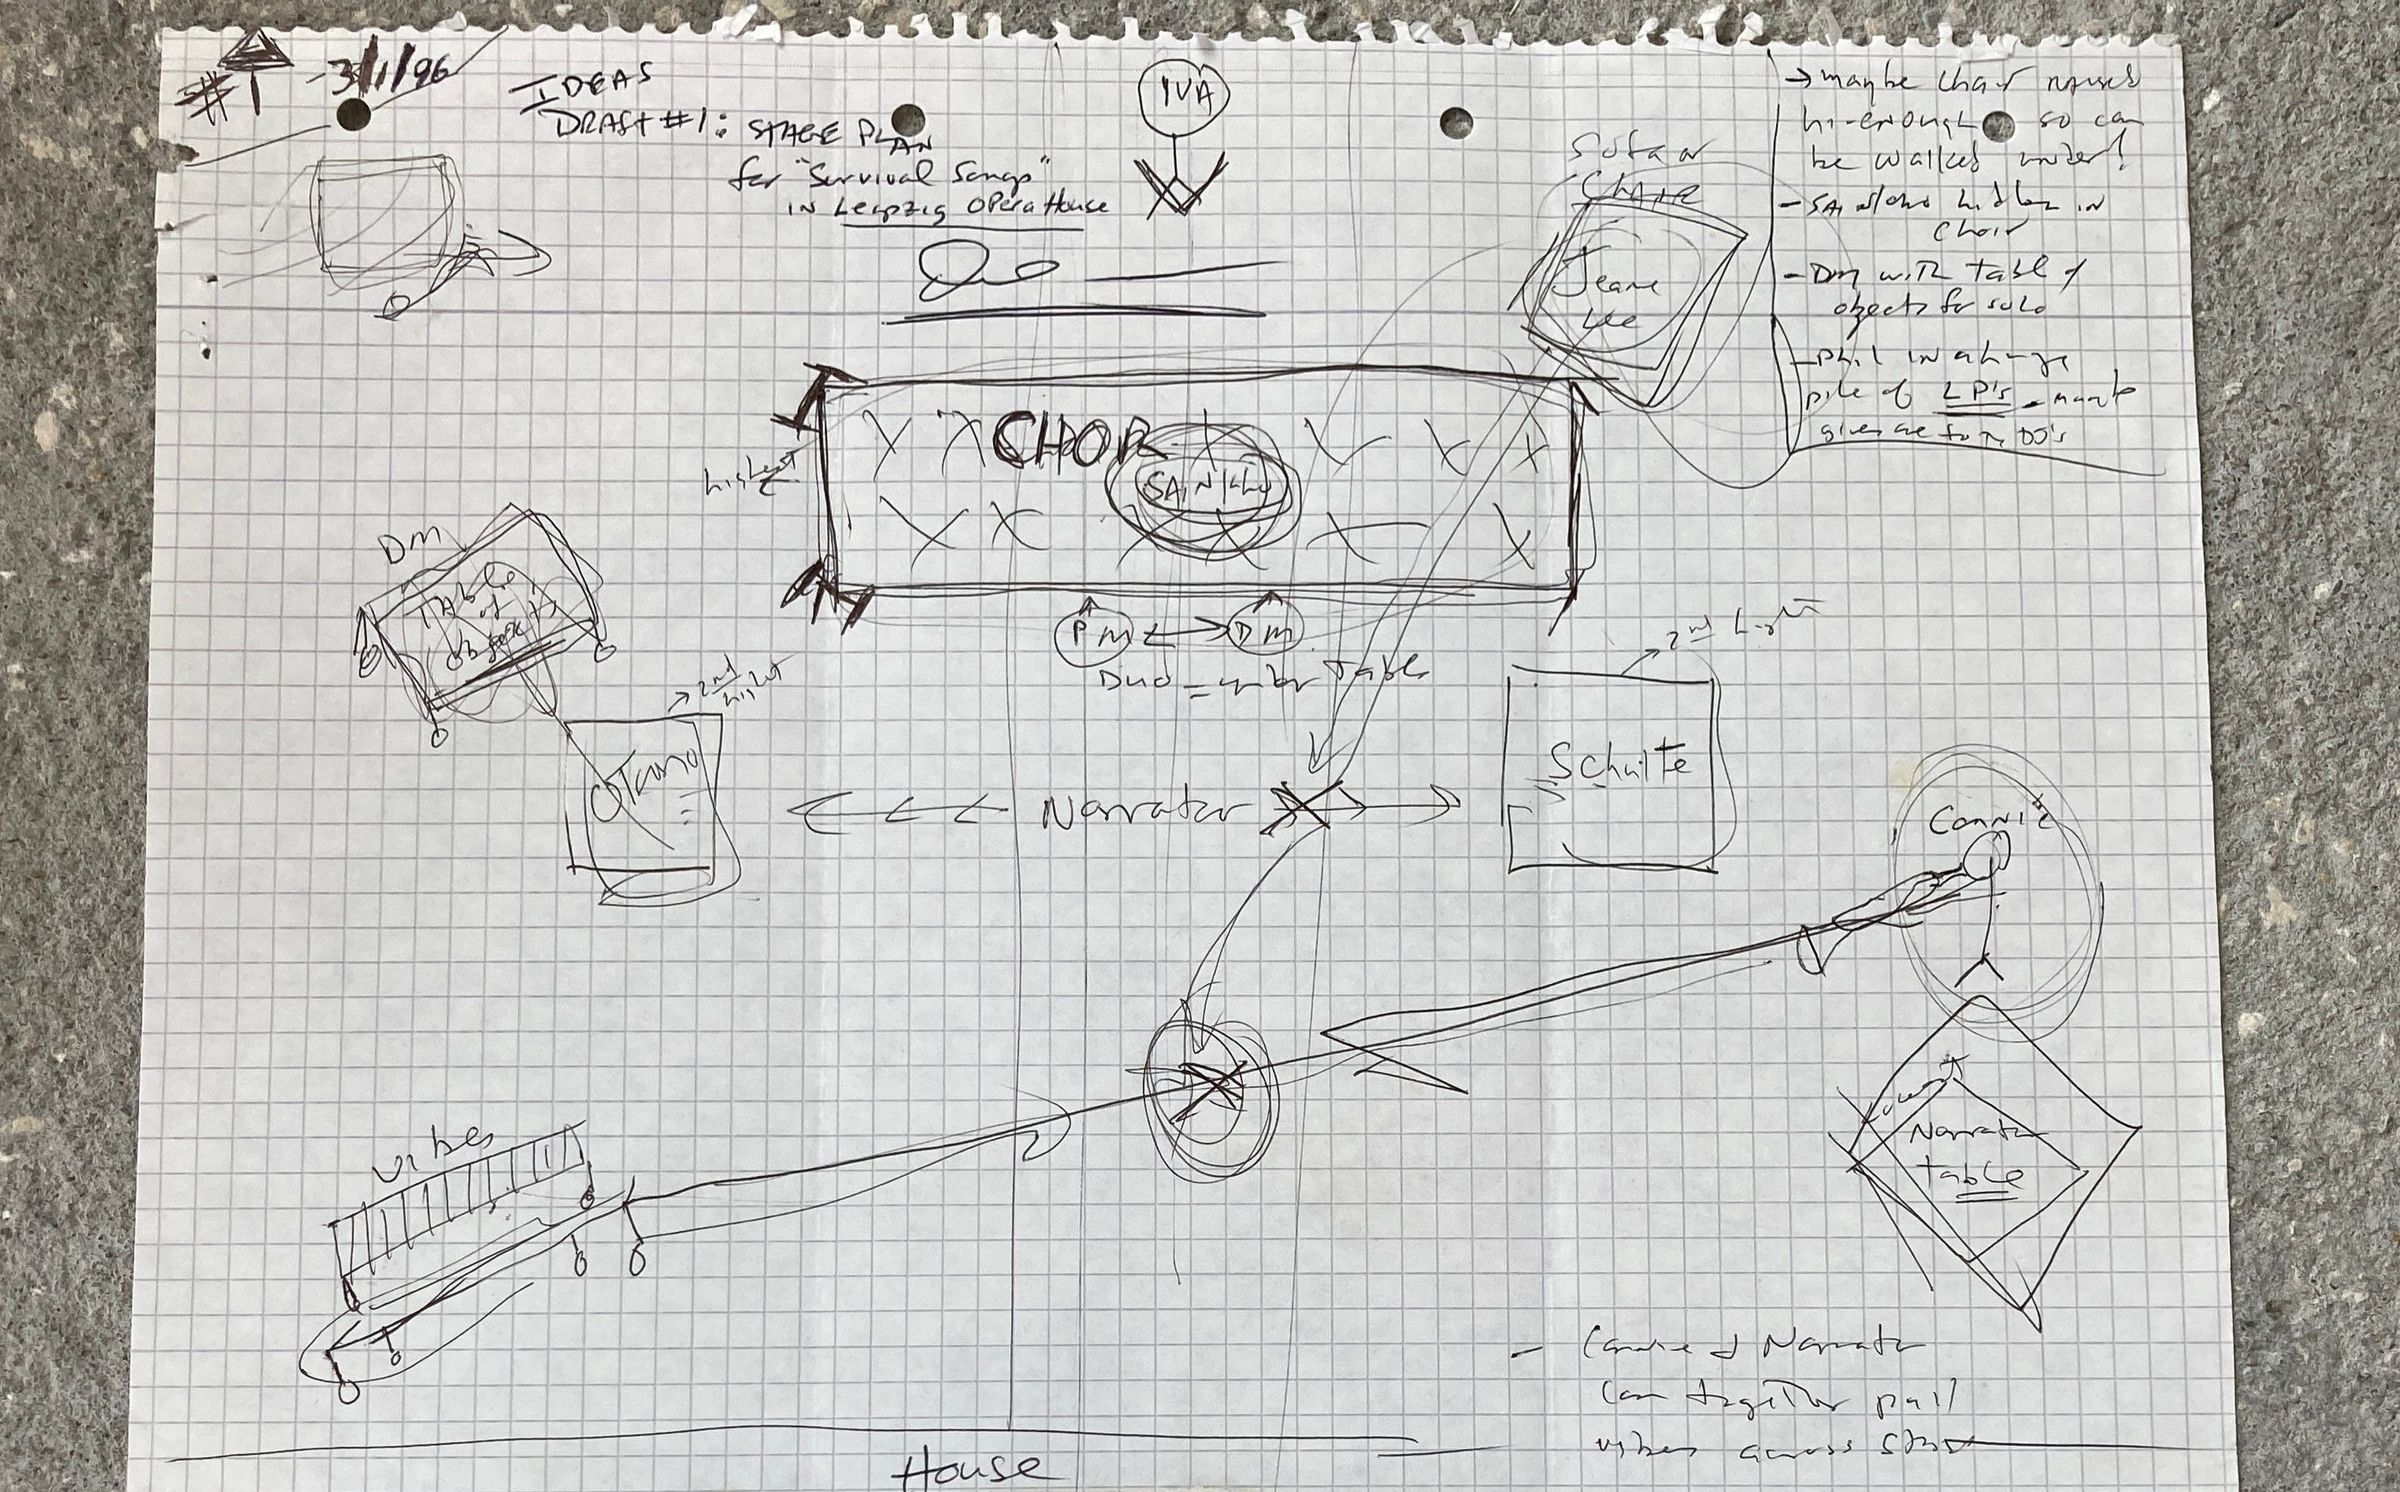 #1 - 3/1/96
IDEAS
DRAFT #1: STAGE PLAN
for "Survival Songs"
IN Leipzig Opera House
IVA
SOFA OR
CHAIR
Jeane
Lee
→ maybe chair raised
hi-enough so can
be walked under!
- SAINKHO hidden in
choir
- DM with table of
objects for solo
- Phil in a huge
pile of LP's - maybe
gives one to the DJ's
highest
CHOR
SAINKHO
DM
TABle
of
objects
PM ↔ DM
Duo = under Table
→ 2nd highest
Tomo
→ 2nd highest
Schulte
Narrator
Connie
vibes
Lowest
Narrator
table
- Connie & Narrator
can together pull
vibes across stage
House